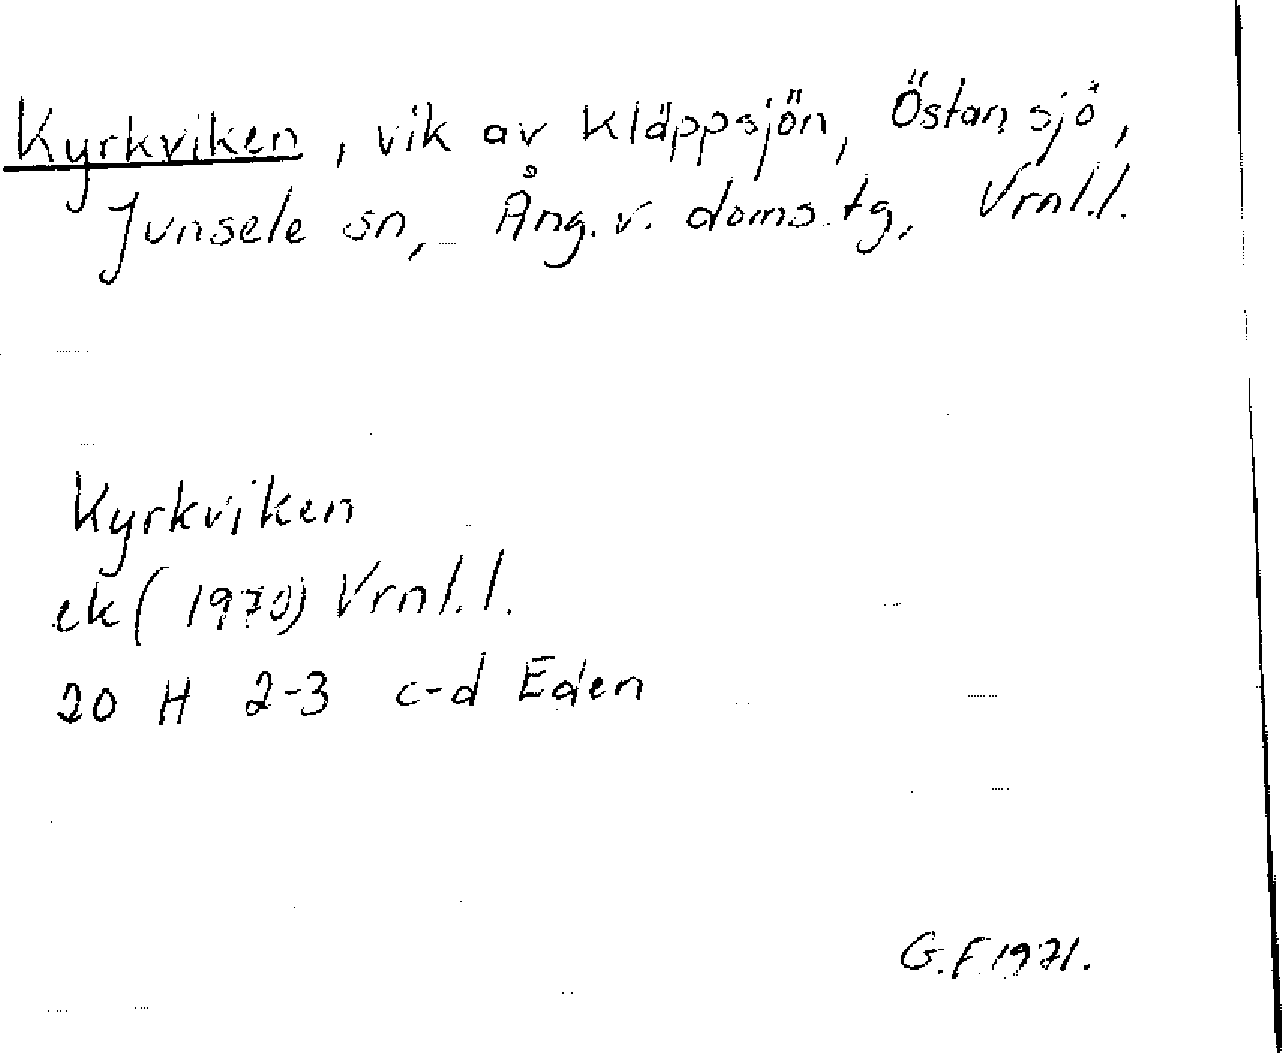 Kyrkviken, vik av Kläppsjön, Östansjö,
Junsele sn, Ång. v. doms. tg, Vrnl.l.
Kyrkviken
ek (1970) Vrnl.l.
20 H 2-3 c-d Eden
G.F 1971.